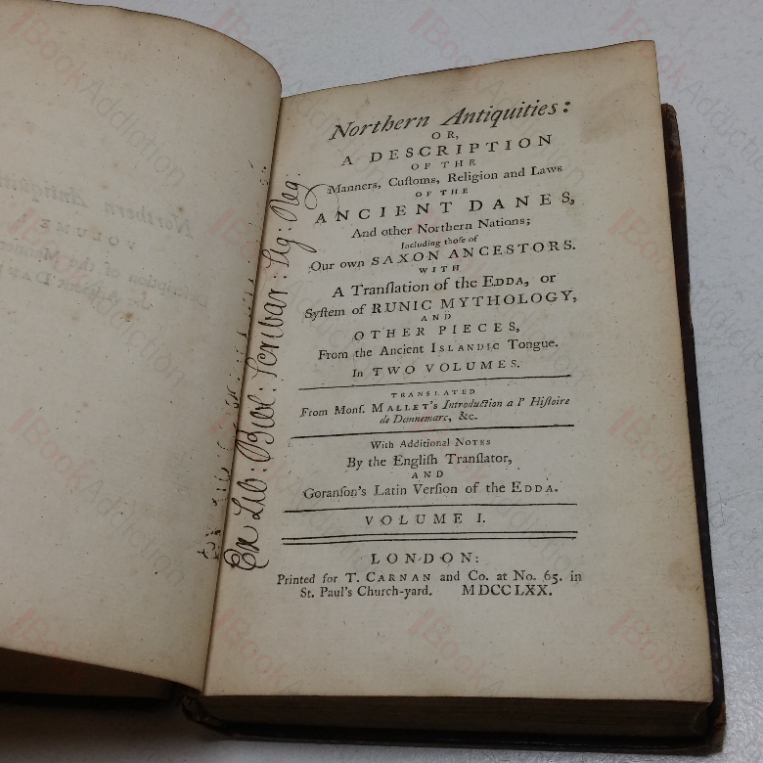 Northern Antiquities:
OR,
A DESCRIPTION
OF THE
Manners, Cuſtoms, Religion and Laws
OF THE
ANCIENT DANES,
And other Northern Nations;
Including thoſe of
Our own SAXON ANCESTORS.
WITH
A Tranſlation of the EDDA, or
Syſtem of RUNIC MYTHOLOGY,
AND
OTHER PIECES,
From the Ancient ISLANDIC Tongue.
In TWO VOLUMES.
TRANSLATED
From Monſ. MALLET's Introduction a l' Hiſtoire
de Dannemarc, &c.
With Additional NOTES
By the Engliſh Tranſlator,
AND
Goranſon's Latin Verſion of the EDDA.
VOLUME I.
LONDON:
Printed for T. CARNAN and Co. at No. 65. in
St. Paul's Church-yard. MDCCLXX.
Ex Lib: Scribar: Sig: Reg: